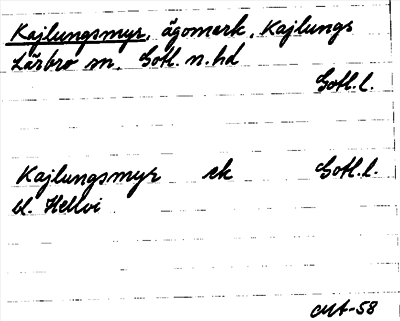 Kajlungsmyr, ägomark, Kajlungs
Lärbro sn. Gotl. n. hd
Gotl. l.
Kajlungsmyr ek Gotl. l.
bl. Hellvi
MA-58